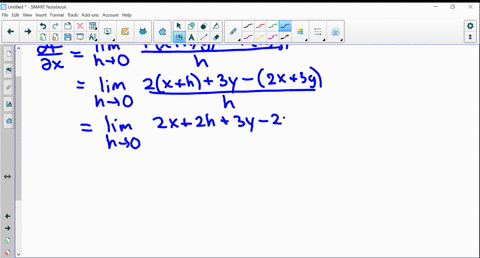 Untitled * - SMART Notebook
File Edit View Insert Format Tools Add-ons Account Help
∂f/∂x = lim h→0 h
= lim h→0 2(x+h)+3y-(2x+3y) / h
= lim h→0 2x+2h+3y-2